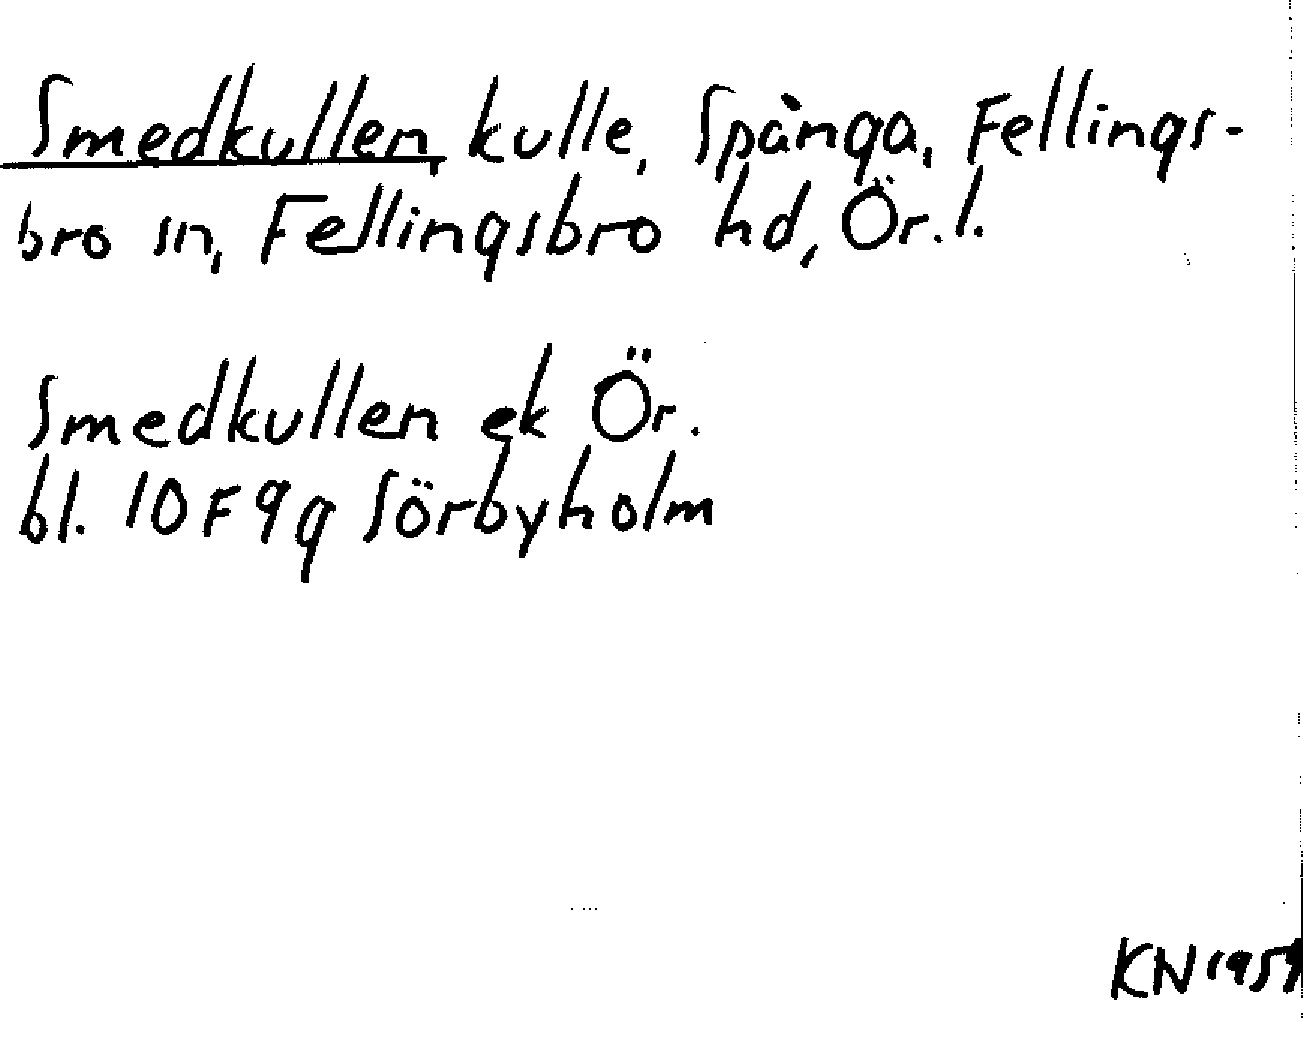 Smedkullen, kulle, Spånga, Fellings-
bro sn, Fellingsbro hd, Ör. l.
Smedkullen ek Ör.
bl. 10F9g Sörbyholm
KN